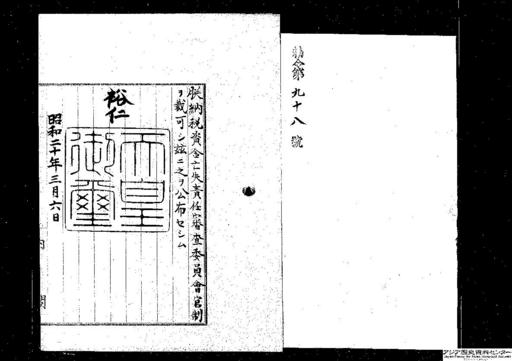 勅令第九十八號
朕納税資金亡失責任審査委員會官制
ヲ裁可シ茲ニ之ヲ公布セシム
裕仁
天皇
御璽
昭和二十年三月六日
内閣
アジア歴史資料センター
Japan Center for Asian Historical Records